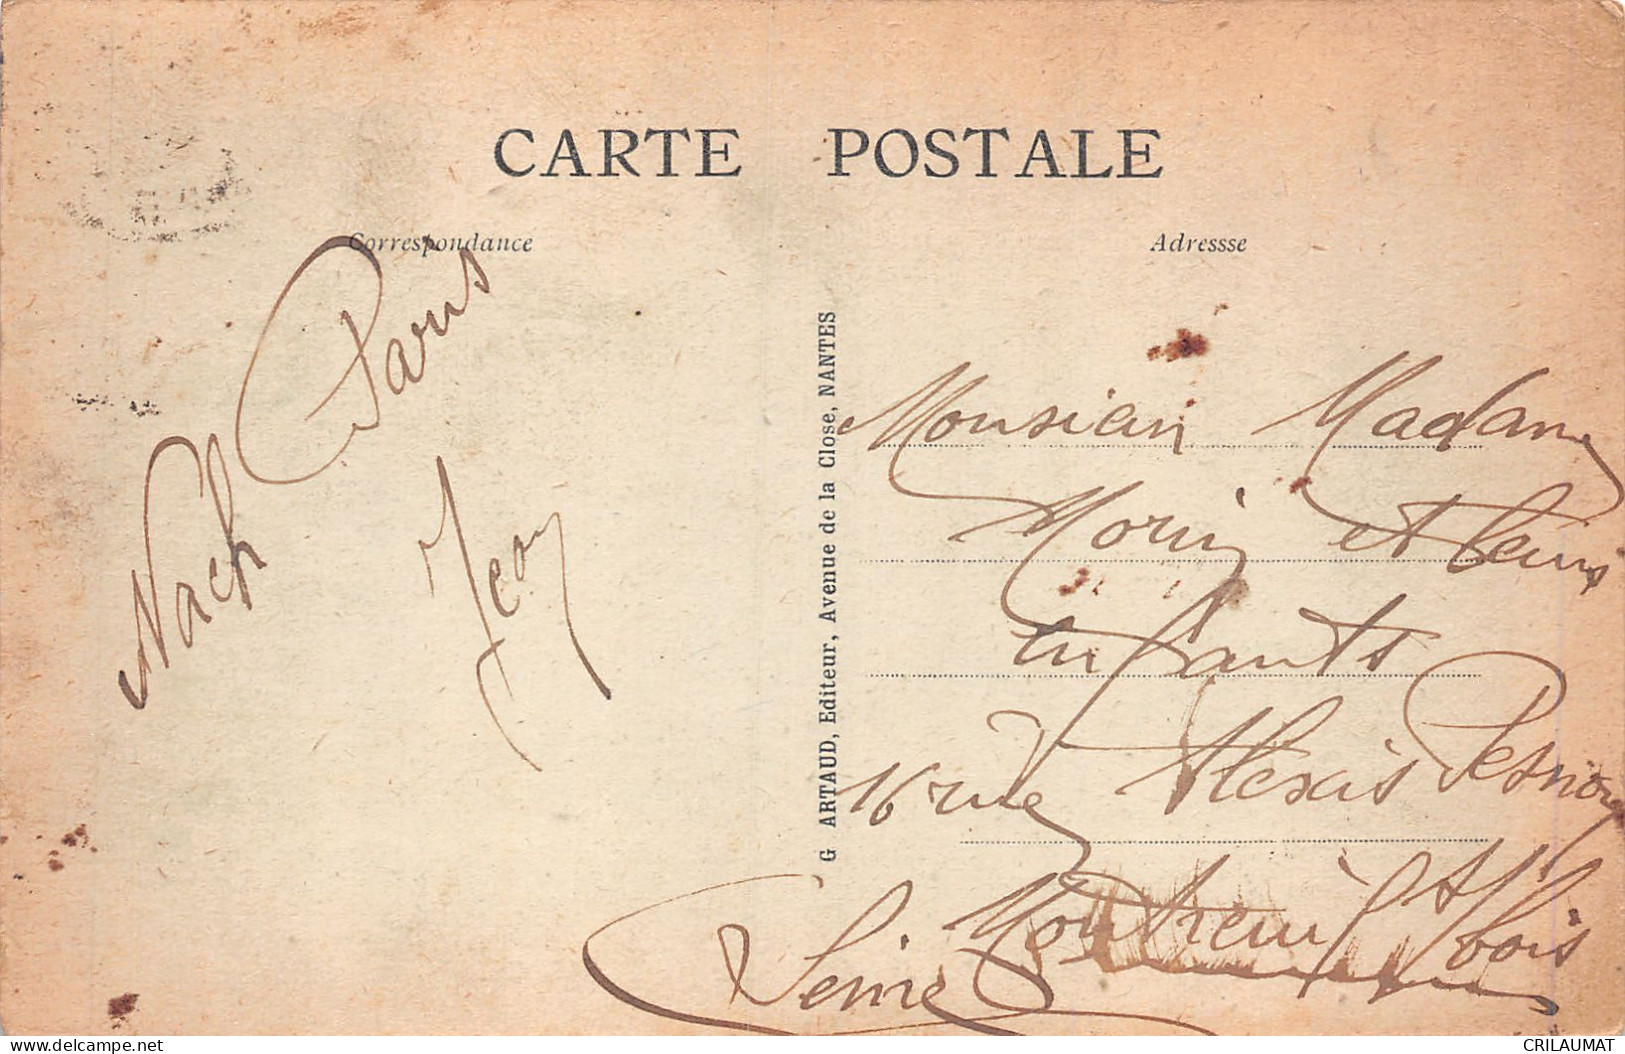 CARTE POSTALE
Correspondance
Adressse
Nach Paris
Jean
G ARTAUD, Editeur, Avenue de la Close, NANTES
Monsieur Madame
Morin et leurs
enfants
16 rue Alexis Pesnon
Montreuil s/bois
Seine
delcampe.net
CRILAUMAT